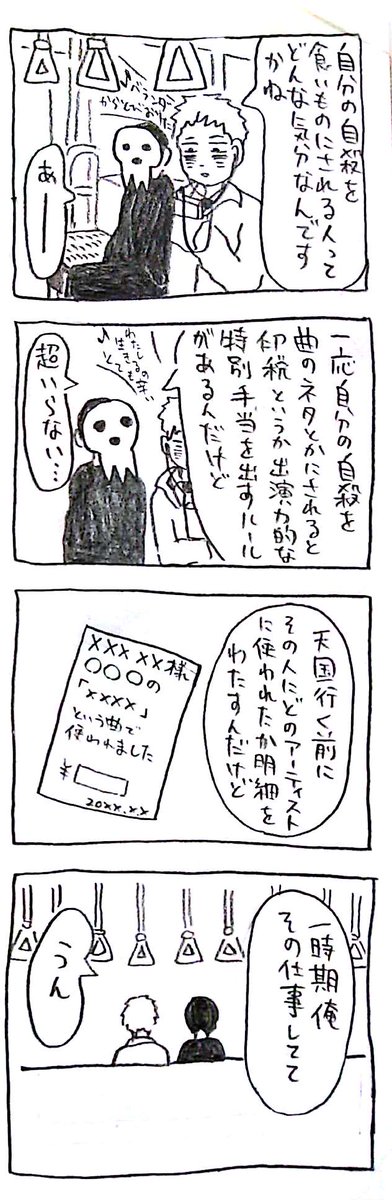 自分の自殺を
食いものにされる人って
どんなに気分なんです
かね
♪ベランダー
からとびおりた♪
あー
一応自分の自殺を
曲のネタとかにされると
印税というか出演力的な
特別手当を出すルール
があるんだけど
わたしの
生きる
とても
超いらない…
天国行く前に
その人にどのアーティスト
に使われたか明細を
わたすんだけど
XXX XX様
○○○の
「××××」
という曲で
使われました
¥
20XX.X.X
一時期俺
その仕事してて
うん